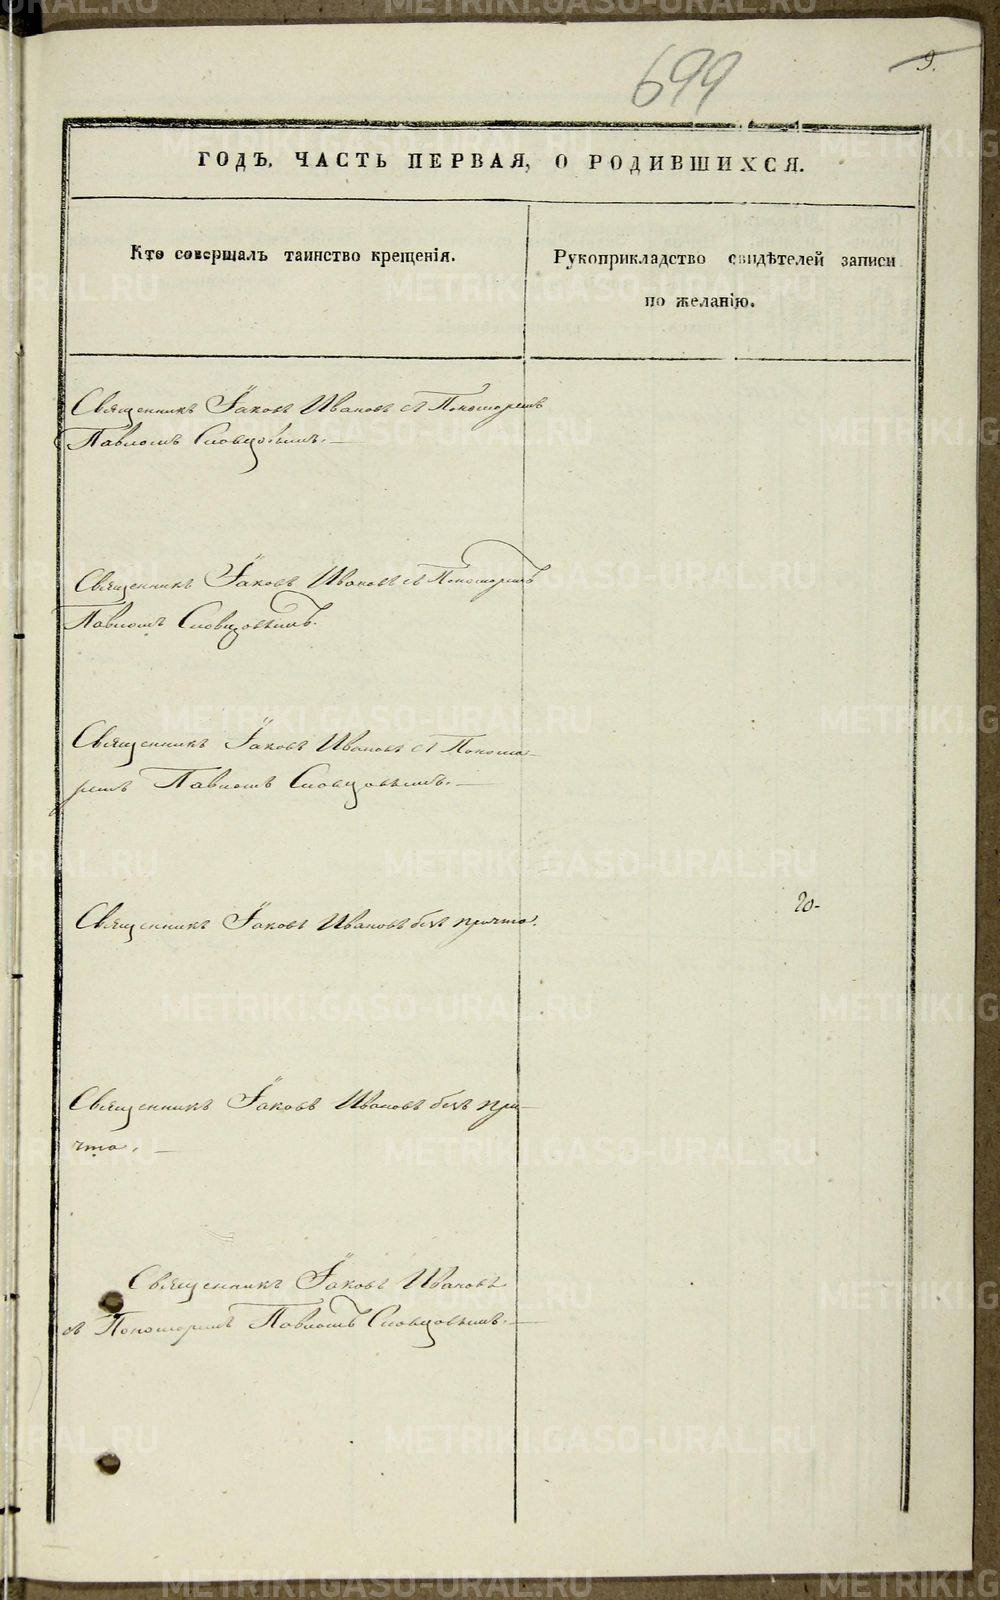 699
9.
ГОДЪ, ЧАСТЬ ПЕРВАЯ, О РОДИВШИХСЯ.
Кто совершалъ таинство крещенія.
Рукоприкладство свидѣтелей записи
по желанію.
Священникъ Іаковъ Ивановъ съ Пономоремъ
Павломъ Словцовымъ.
Священникъ Іаковъ Ивановъ съ Пономоремъ
Павломъ Словцовымъ.
Священникъ Іаковъ Ивановъ съ Пономо-
ремъ Павломъ Словцовымъ.
Священникъ Іаковъ Ивановъ безъ причта.
Священникъ Іаковъ Ивановъ безъ при-
чта.
Священникъ Іаковъ Ивановъ
съ Пономоремъ Павломъ Словцовымъ.
METRIKI.GASO-URAL.RU